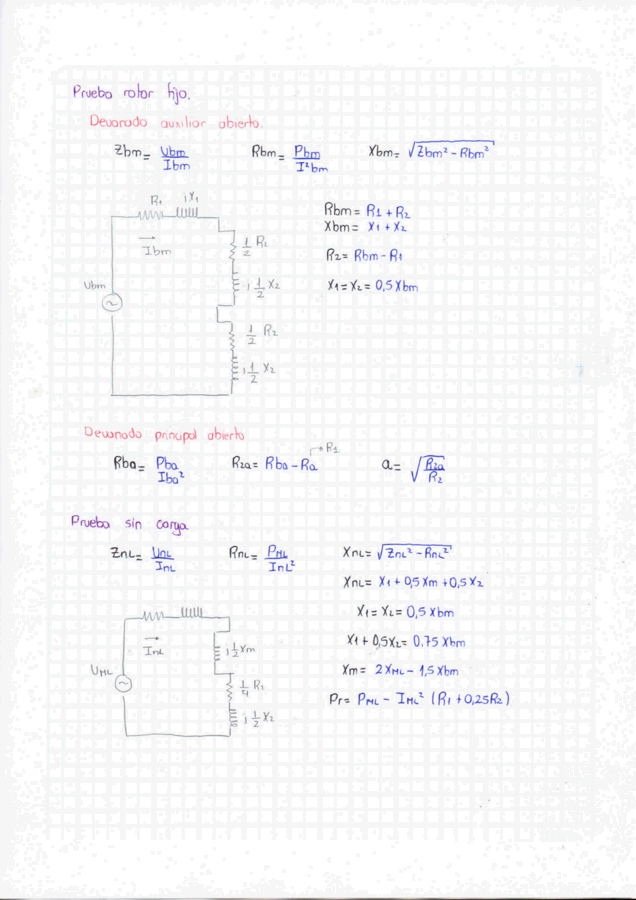 Prueba rotor fijo.
Devanado auxiliar abierto.
Zbm = Ubm / Ibm   Rbm = Pbm / I²bm   Xbm = √(Zbm² - Rbm²)
R1 jX1
Ibm
Ubm
~
1/2 R2
j 1/2 X2
1/2 R2
j 1/2 X2
Rbm = R1 + R2
Xbm = X1 + X2
R2 = Rbm - R1
X1 = X2 = 0,5 Xbm
Devanado principal abierto
Rba = Pba / Iba²   R2a = Rba - Ra → R1   a = √(R2a / R2)
Prueba sin carga
ZnL = UnL / InL   RnL = PML / InL²   XnL = √(ZnL² - RnL²)
XnL = X1 + 0,5 Xm + 0,5 X2
X1 = X2 = 0,5 Xbm
X1 + 0,5X2 = 0.75 Xbm
Xm = 2XML - 1,5Xbm
Pr = PML - IML² (R1 + 0,25R2)
InL
UML
~
j 1/2 Xm
1/4 R2
j 1/2 X2